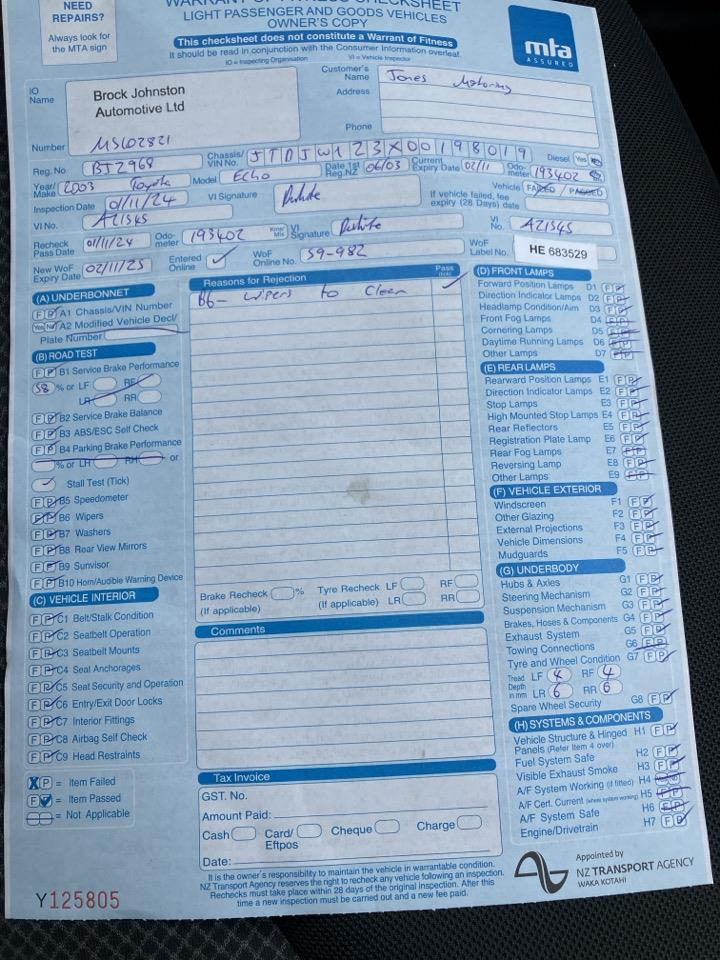 NEED
REPAIRS?
Always look for
the MTA sign
WARRANT OF FITNESS CHECKSHEET
LIGHT PASSENGER AND GOODS VEHICLES
OWNER'S COPY
This checksheet does not constitute a Warrant of Fitness
It should be read in conjunction with the Consumer Information overleaf.
IO = Inspecting Organisation VI = Vehicle Inspector
mta
ASSURED
IO Name Brock Johnston Automotive Ltd
Number MSL02821
Customer's Name Jones Motoring
Address
Phone
Reg. No BJZ968 Chassis/VIN No. JTDJW123X00198019 Diesel Yes No
Year/Make 2003 Toyota Model Echo Date 1st Reg.NZ 06/03 Current Expiry Date 02/11 Odometer 193402
Inspection Date 01/11/24 VI Signature Vehicle FAILED / PASSED
VI No. AZ1545 If vehicle failed, fee expiry (28 Days) date
Recheck Pass Date 01/11/24 Odometer 193402 Kms/Mls VI Signature VI No. AZ1545
New WoF Expiry Date 02/11/25 Entered Online WoF Online No. 59-982 WoF Label No. HE 683529
(A) UNDERBONNET
F P A1 Chassis/VIN Number
Yes No A2 Modified Vehicle Decl/
Plate Number
(B) ROAD TEST
F P B1 Service Brake Performance
58 % or LF RF
LR RR
F P B2 Service Brake Balance
F P B3 ABS/ESC Self Check
F P B4 Parking Brake Performance
% or LH RH or
Stall Test (Tick)
F P B5 Speedometer
F P B6 Wipers
F P B7 Washers
F P B8 Rear View Mirrors
F P B9 Sunvisor
F P B10 Horn/Audible Warning Device
(C) VEHICLE INTERIOR
F P C1 Belt/Stalk Condition
F P C2 Seatbelt Operation
F P C3 Seatbelt Mounts
F P C4 Seat Anchorages
F P C5 Seat Security and Operation
F P C6 Entry/Exit Door Locks
F P C7 Interior Fittings
F P C8 Airbag Self Check
F P C9 Head Restraints
X P = Item Failed
F = Item Passed
= Not Applicable
Y125805
Reasons for Rejection Pass (tick)
B6- wipers to clean
Brake Recheck % Tyre Recheck LF RF
(If applicable) (If applicable) LR RR
Comments
Tax Invoice
GST. No.
Amount Paid:
Cash Card/Eftpos Cheque Charge
Date:
It is the owner's responsibility to maintain the vehicle in warrantable condition.
NZ Transport Agency reserves the right to recheck any vehicle following an inspection.
Rechecks must take place within 28 days of the original inspection. After this
time a new inspection must be carried out and a new fee paid.
(D) FRONT LAMPS
Forward Position Lamps D1 F P
Direction Indicator Lamps D2 F P
Headlamp Condition/Aim D3 F P
Front Fog Lamps D4 F P
Cornering Lamps D5 F P
Daytime Running Lamps D6 F P
Other Lamps D7 F P
(E) REAR LAMPS
Rearward Position Lamps E1 F P
Direction Indicator Lamps E2 F P
Stop Lamps E3 F P
High Mounted Stop Lamps E4 F P
Rear Reflectors E5 F P
Registration Plate Lamp E6 F P
Rear Fog Lamps E7 F P
Reversing Lamp E8 F P
Other Lamps E9 F P
(F) VEHICLE EXTERIOR
Windscreen F1 F P
Other Glazing F2 F P
External Projections F3 F P
Vehicle Dimensions F4 F P
Mudguards F5 F P
(G) UNDERBODY
Hubs & Axles G1 F P
Steering Mechanism G2 F P
Suspension Mechanism G3 F P
Brakes, Hoses & Components G4 F P
Exhaust System G5 F P
Towing Connections G6 F P
Tyre and Wheel Condition G7 F P
Tread Depth in mm LF 4 RF 4
LR 6 RR 6
Spare Wheel Security G8 F P
(H) SYSTEMS & COMPONENTS
Vehicle Structure & Hinged H1 F P
Panels (Refer Item 4 over)
Fuel System Safe H2 F P
Visible Exhaust Smoke H3 F P
A/F System Working (if fitted) H4
A/F Cert. Current (where system working) H5 F P
A/F System Safe H6 F P
Engine/Drivetrain H7 F P
Appointed by
NZ TRANSPORT AGENCY
WAKA KOTAHI